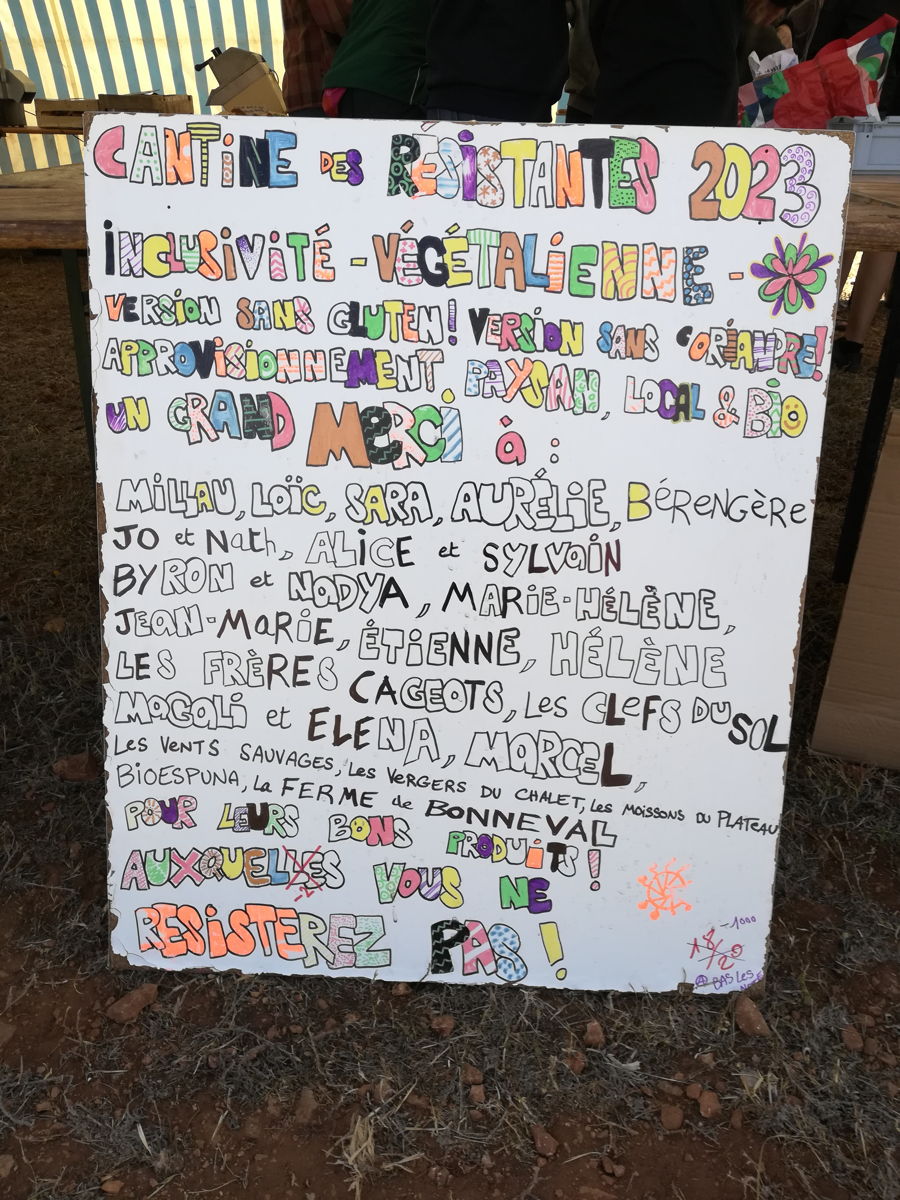 CANTINE DES RÉSISTANTES 2023
INCLUSIVITÉ - VÉGÉTALIENNE -
VERSION SANS GLUTEN! VERSION SANS CORIANDRE!
APPROVISIONNEMENT PAYSAN, LOCAL & BIO
UN GRAND MERCI à :
MILLAU, LOÏC, SARA, AURÉLIE, BÉRENGÈRE
JO et Nath, ALICE et SYLVAIN
BYRON et NADYA, MARIE-HÉLÈNE,
JEAN-MARIE, ÉTIENNE, HÉLÈNE
LES FRÈRES CAGEOTS, Les CLEFS DU SOL
MAGALI et ELENA, MARCEL,
Les VENTS SAUVAGES, Les VERGERS DU CHALET, Les MOISSONS DU PLATEAU
BIOESPUNA, La FERME de BONNEVAL
POUR LEURS BONS PRODUITS!
AUXQUELLES VOUS NE
-2
RESISTEREZ PAS!
-1000
18/20
@ BAS LES